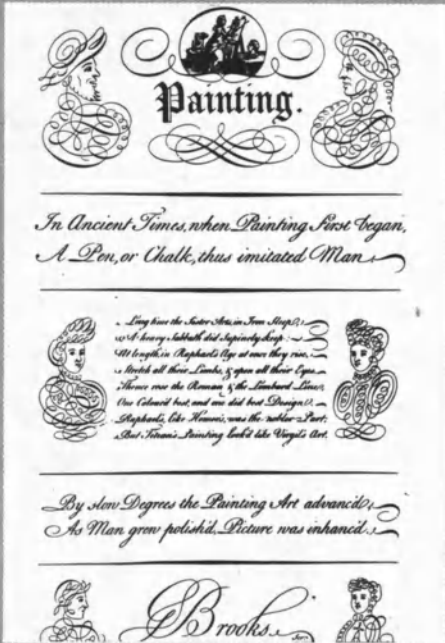 Painting.
In Ancient Times, when Painting first began,
A Pen, or Chalk, thus imitated Man
Long time the Sister Arts, in Iron Sleep,
A heavy Sabbath did supinely keep:
At length, in Raphael's Age at once they rise,
Stretch all their Limbs, & open all their Eyes.
Thence rose the Roman & the Lombard Line,
One Colour'd best, and one did best Design.
Raphael's, like Homer's, was the nobler Part;
But Titian's Painting look'd like Virgil's Art.
By slow Degrees the Painting Art advanc'd,
As Man grew polish'd, Picture was inhanc'd.
Brooks